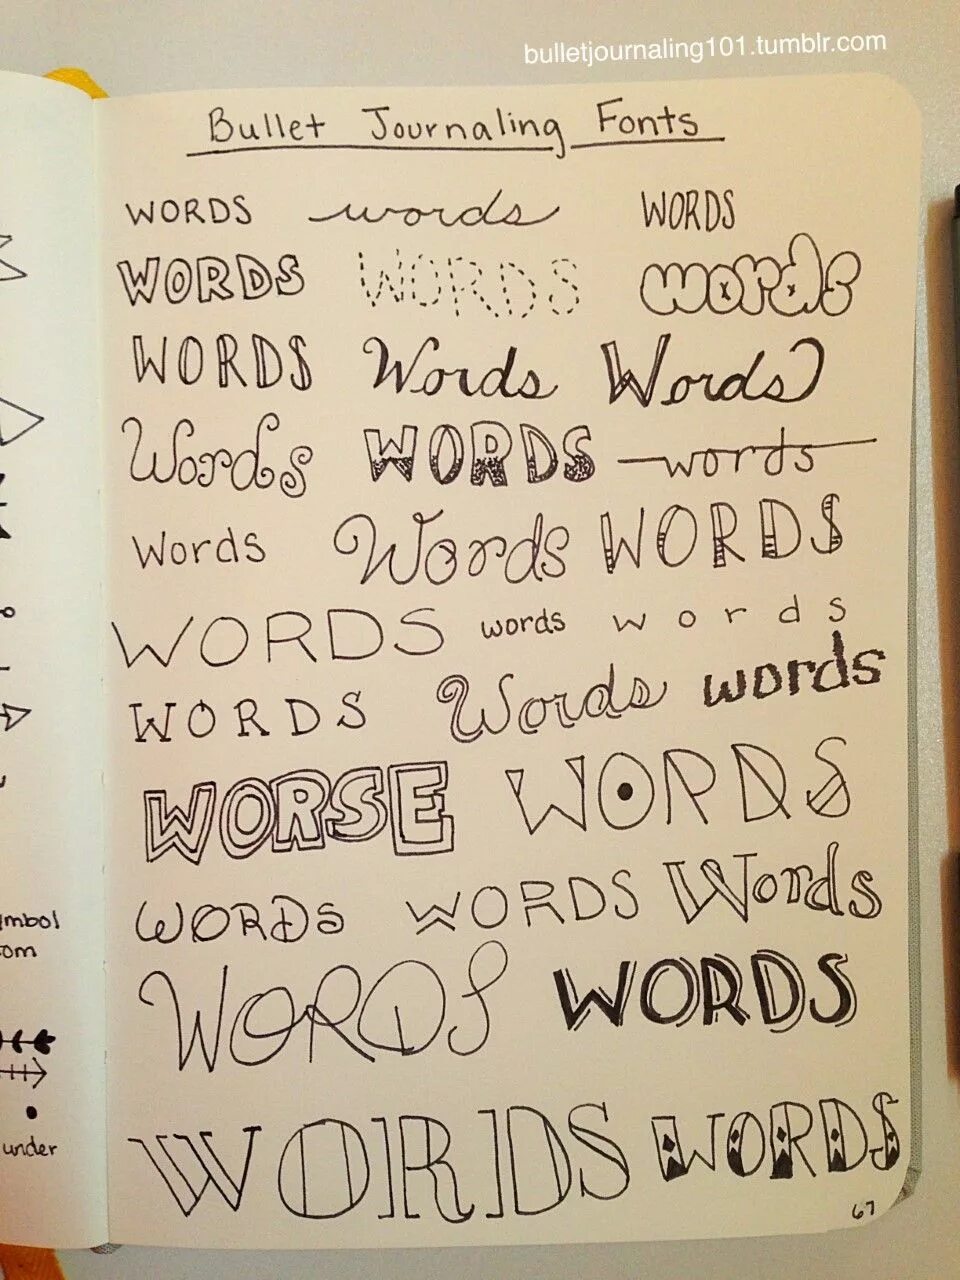 bulletjournaling101.tumblr.com
Bullet Journaling Fonts
WORDS words WORDS
WORDS WORDS words
WORDS Words Words
Words WORDS words
Words Words WORDS
WORDS words words
WORDS Words words
WORSE WORDS
WORDS WORDS Words
WORDS WORDS
WORDS WORDS
67
ymbol
om
under